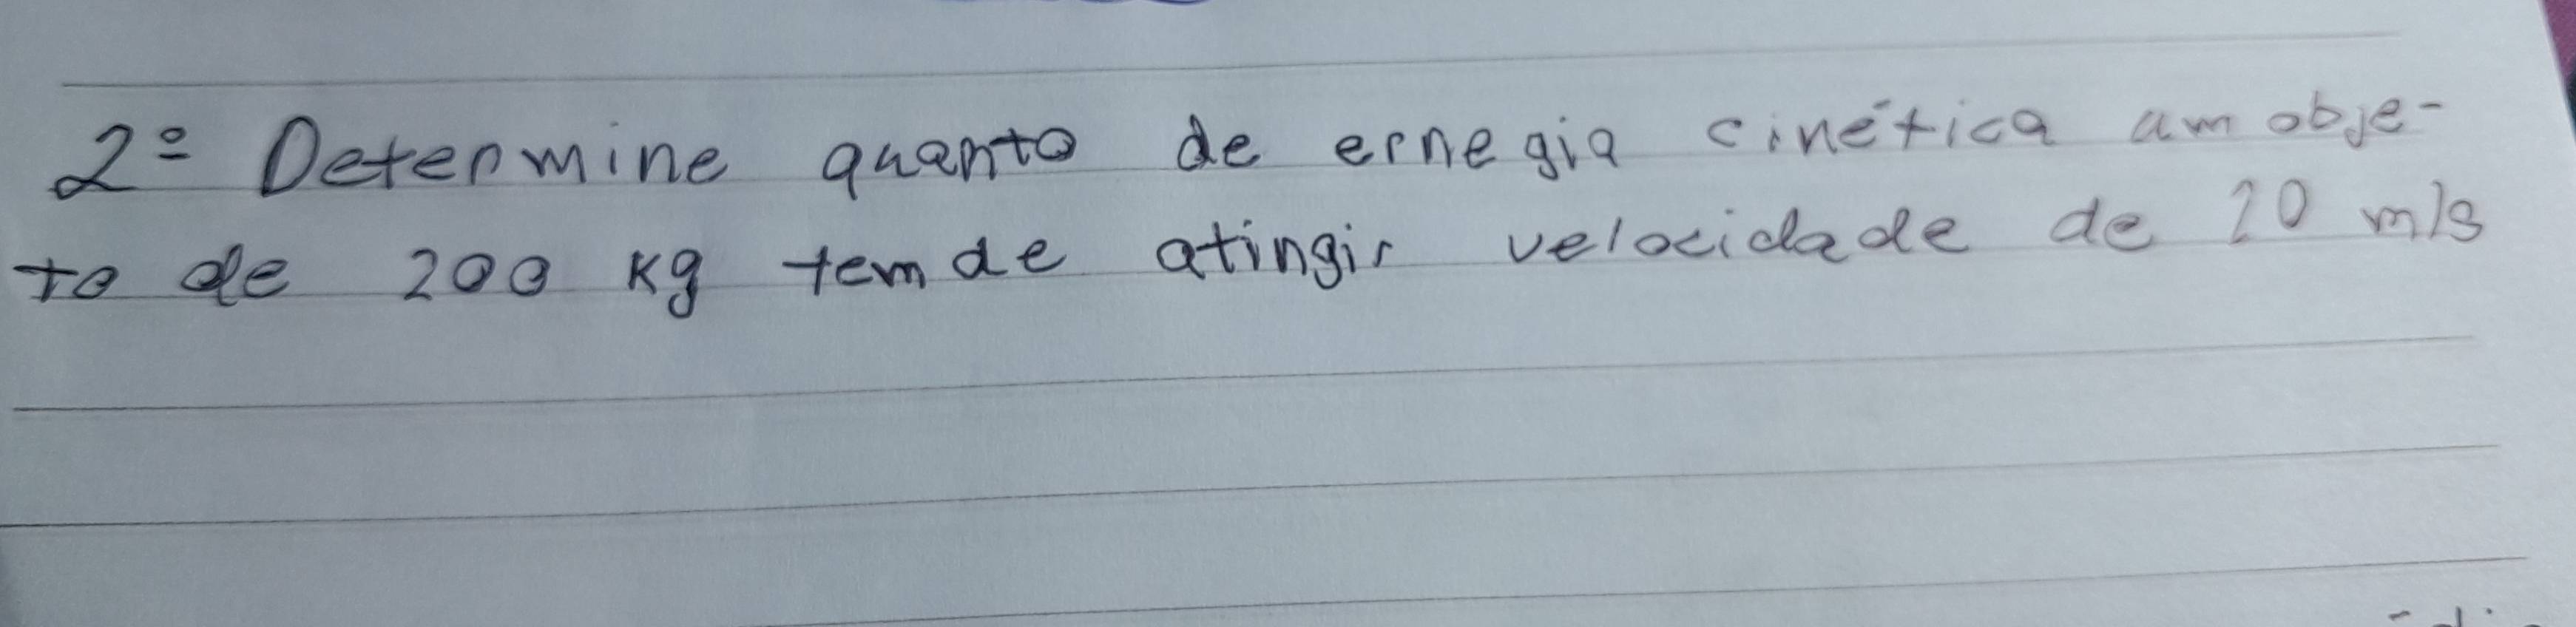 2º Determine quanto de ernegia cinética um obje-
to de 200 kg tem de atingir velocidade de 20 m/s